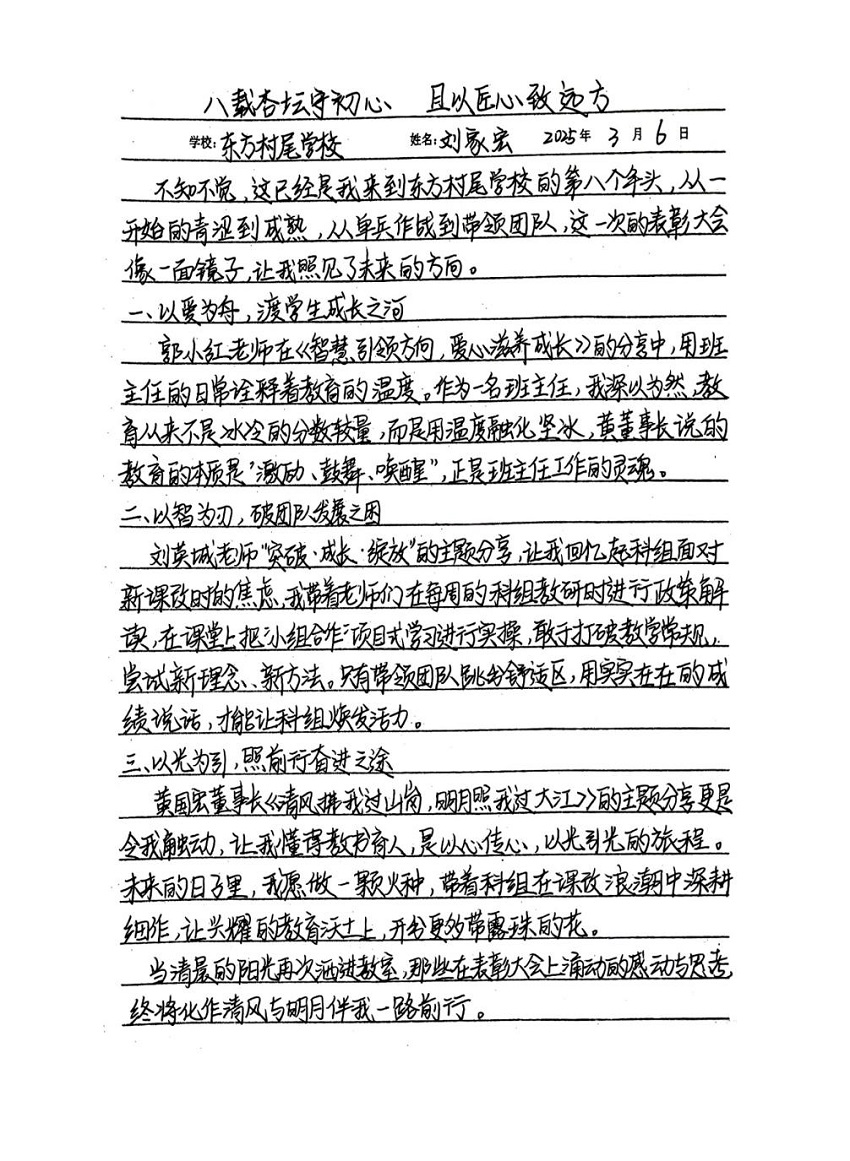 八载杏坛守初心 且以匠心致远方
学校:东方村尾学校 姓名:刘家宏 2025年 3月6日
不知不觉,这已经是我来到东方村尾学校的第八个年头,从一
开始的青涩到成熟,从单兵作战到带领团队,这一次的表彰大会
像一面镜子,让我照见了未来的方向。
一、以爱为舟,渡学生成长之河
郭小红老师在《智慧引领方向,爱心滋养成长》的分享中,用班
主任的日常诠释着教育的温度。作为一名班主任,我深以为然,教
育从来不是冰冷的分数较量,而是用温度融化坚冰,黄董事长说的
教育的本质是“激励、鼓舞、唤醒”,正是班主任工作的灵魂。
二、以智为刃,破团队发展之困
刘英城老师“突破·成长·绽放”的主题分享,让我回忆起科组面对
新课改时的焦虑,我带着老师们在每周的科组教研时进行政策解
读,在课堂上把“小组合作”项目式学习进行实操,敢于打破教学常规,
尝试新理念、新方法。只有带领团队跳出舒适区,用实实在在的成
绩说话,才能让科组焕发活力。
三、以光为引,照前行奋进之途
黄国宏董事长《清风拂我过山岗,明月照我过大江》的主题分享更是
令我触动,让我懂得教书育人,是以心传心,以光引光的旅程。
未来的日子里,我愿做一颗火种,带着科组在课改浪潮中深耕
细作,让兴耀的教育沃土上,开出更多带露珠的花。
当清晨的阳光再次洒进教室,那些在表彰大会上涌动的感动与思考,
终将化作清风与明月伴我一路前行。